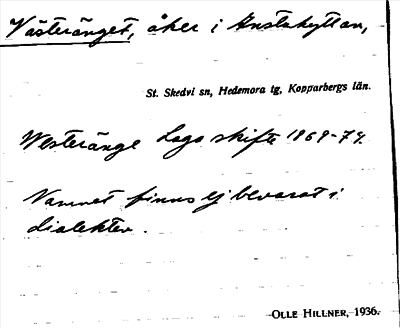 Västeränget, åker i Anstahyttan,
St. Skedvi sn, Hedemora tg, Kopparbergs län.
Westeränge Laga skifte 1869-74.
Namnet finns ej bevarat i
dialekten.
OLLE HILLNER, 1936.